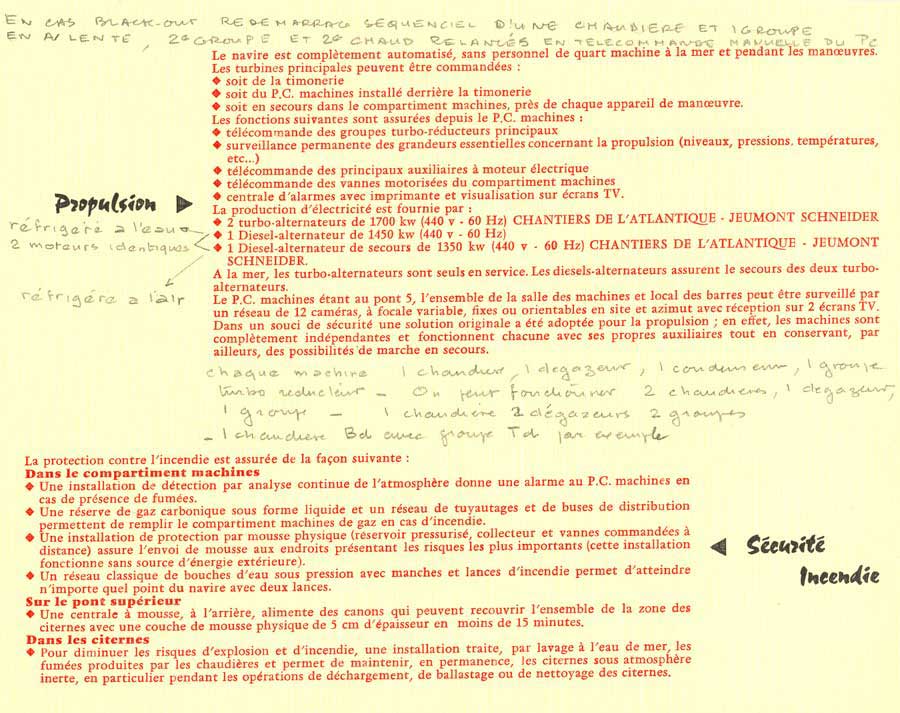 EN CAS BLACK-OUT REDEMARRAG SEQUENCIEL D'UNE CHAUDIERE ET 1 GROUPE
EN A/ LENTE, 2e GROUPE ET 2e CHAUD RELANCÉS EN TELECOMMANDE MANUELLE DU PC
Le navire est complètement automatisé, sans personnel de quart machine à la mer et pendant les manœuvres.
Les turbines principales peuvent être commandées :
◆ soit de la timonerie
◆ soit du P.C. machines installé derrière la timonerie
◆ soit en secours dans le compartiment machines, près de chaque appareil de manœuvre.
Les fonctions suivantes sont assurées depuis le P.C. machines :
◆ télécommande des groupes turbo-réducteurs principaux
◆ surveillance permanente des grandeurs essentielles concernant la propulsion (niveaux, pressions, températures,
etc...)
◆ télécommande des principaux auxiliaires à moteur électrique
◆ télécommande des vannes motorisées du compartiment machines
◆ centrale d'alarmes avec imprimante et visualisation sur écrans TV.
Propulsion ▶
La production d'électricité est fournie par :
◆ 2 turbo-alternateurs de 1700 kw (440 v - 60 Hz) CHANTIERS DE L'ATLANTIQUE - JEUMONT SCHNEIDER
réfrigéré a l'eau
◆ 1 Diesel-alternateur de 1450 kw (440 v - 60 Hz)
2 moteurs identiques
◆ 1 Diesel-alternateur de secours de 1350 kw (440 v - 60 Hz) CHANTIERS DE L'ATLANTIQUE - JEUMONT
SCHNEIDER.
A la mer, les turbo-alternateurs sont seuls en service. Les diesels-alternateurs assurent le secours des deux turbo-
alternateurs.
réfrigéré a l'air
Le P.C. machines étant au pont 5, l'ensemble de la salle des machines et local des barres peut être surveillé par
un réseau de 12 caméras, à focale variable, fixes ou orientables en site et azimut avec réception sur 2 écrans TV.
Dans un souci de sécurité une solution originale a été adoptée pour la propulsion ; en effet, les machines sont
complètement indépendantes et fonctionnent chacune avec ses propres auxiliaires tout en conservant, par
ailleurs, des possibilités de marche en secours.
chaque machine 1 chaudiere, 1 degazeur, 1 condenseur, 1 groupe
turbo reducteur - On peut fonctionner 2 chaudieres, 1 degazeur,
1 groupe - 1 chaudière 2 dégazeurs 2 groupes
- 1 chaudiere Bd avec groupe Td par exemple
La protection contre l'incendie est assurée de la façon suivante :
Dans le compartiment machines
◆ Une installation de détection par analyse continue de l'atmosphère donne une alarme au P.C. machines en
cas de présence de fumées.
◆ Une réserve de gaz carbonique sous forme liquide et un réseau de tuyautages et de buses de distribution
permettent de remplir le compartiment machines de gaz en cas d'incendie.
◆ Une installation de protection par mousse physique (réservoir pressurisé, collecteur et vannes commandées à
distance) assure l'envoi de mousse aux endroits présentant les risques les plus importants (cette installation
fonctionne sans source d'énergie extérieure).
◀ Sécurité
Incendie
◆ Un réseau classique de bouches d'eau sous pression avec manches et lances d'incendie permet d'atteindre
n'importe quel point du navire avec deux lances.
Sur le pont supérieur
◆ Une centrale à mousse, à l'arrière, alimente des canons qui peuvent recouvrir l'ensemble de la zone des
citernes avec une couche de mousse physique de 5 cm d'épaisseur en moins de 15 minutes.
Dans les citernes
◆ Pour diminuer les risques d'explosion et d'incendie, une installation traite, par lavage à l'eau de mer, les
fumées produites par les chaudières et permet de maintenir, en permanence, les citernes sous atmosphère
inerte, en particulier pendant les opérations de déchargement, de ballastage ou de nettoyage des citernes.